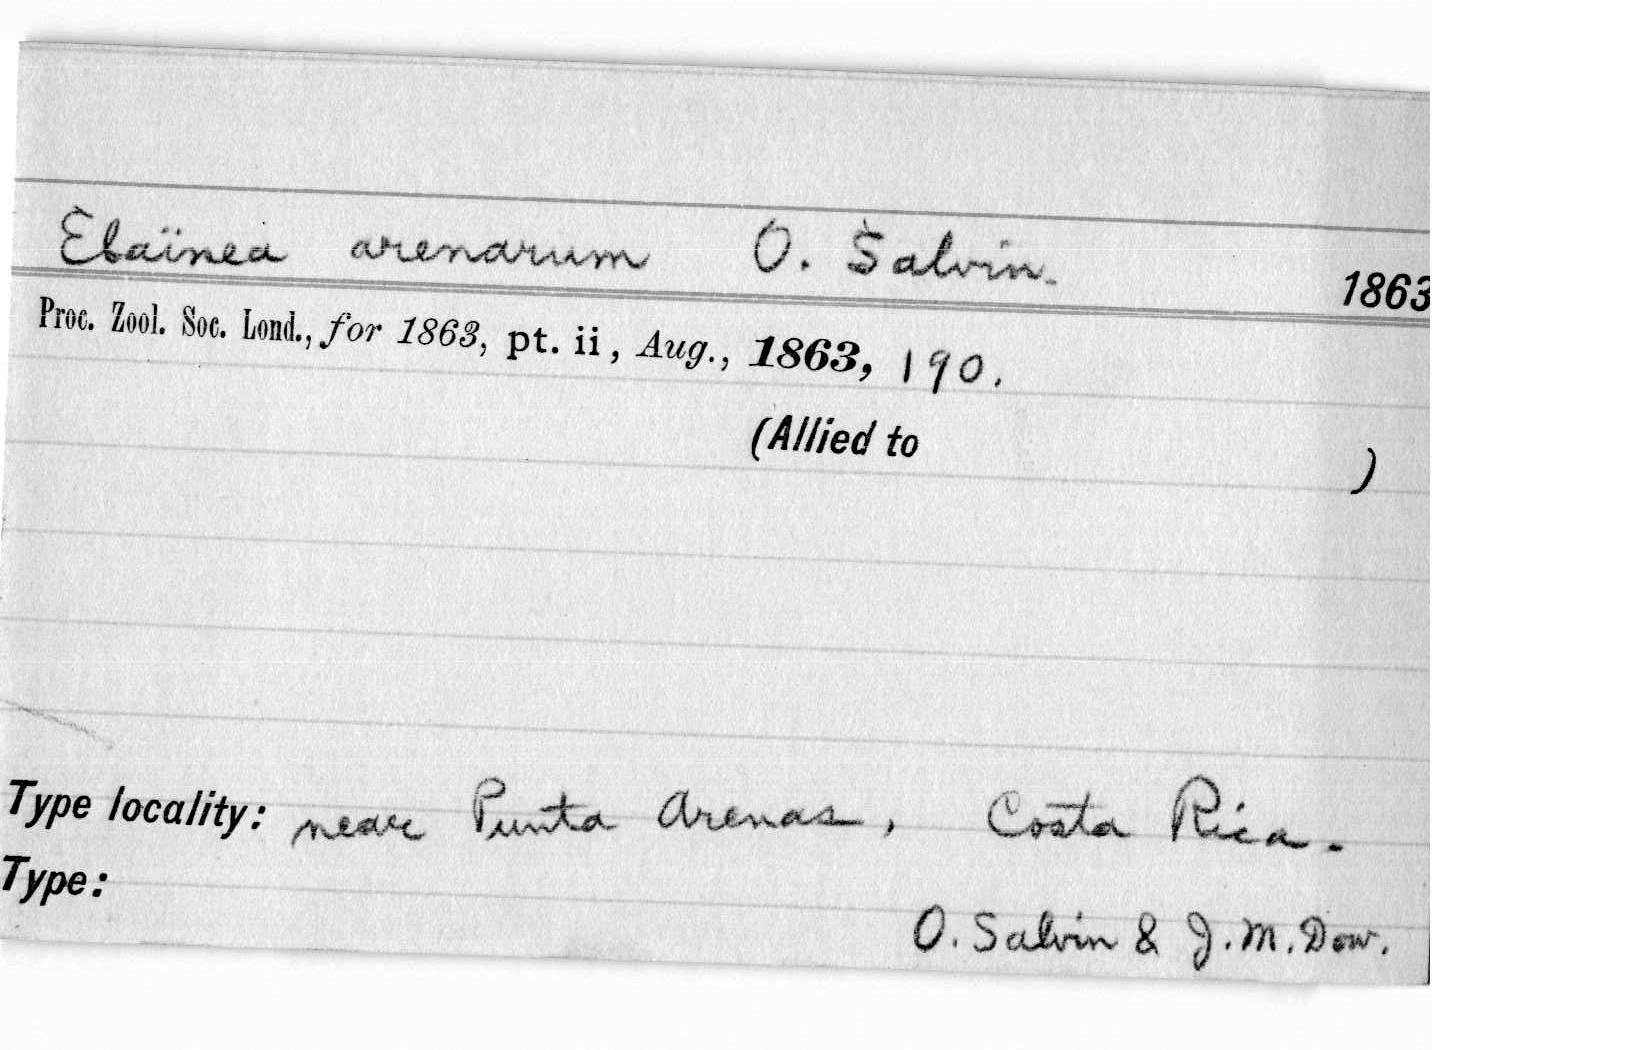 Elaïnea arenarum O. Salvin.
1863
Proc. Zool. Soc. Lond., for 1863, pt. ii, Aug., 1863, 190.
(Allied to )
Type locality: near Punta Arenas, Costa Rica.
Type:
O. Salvin & J. M. Dow.